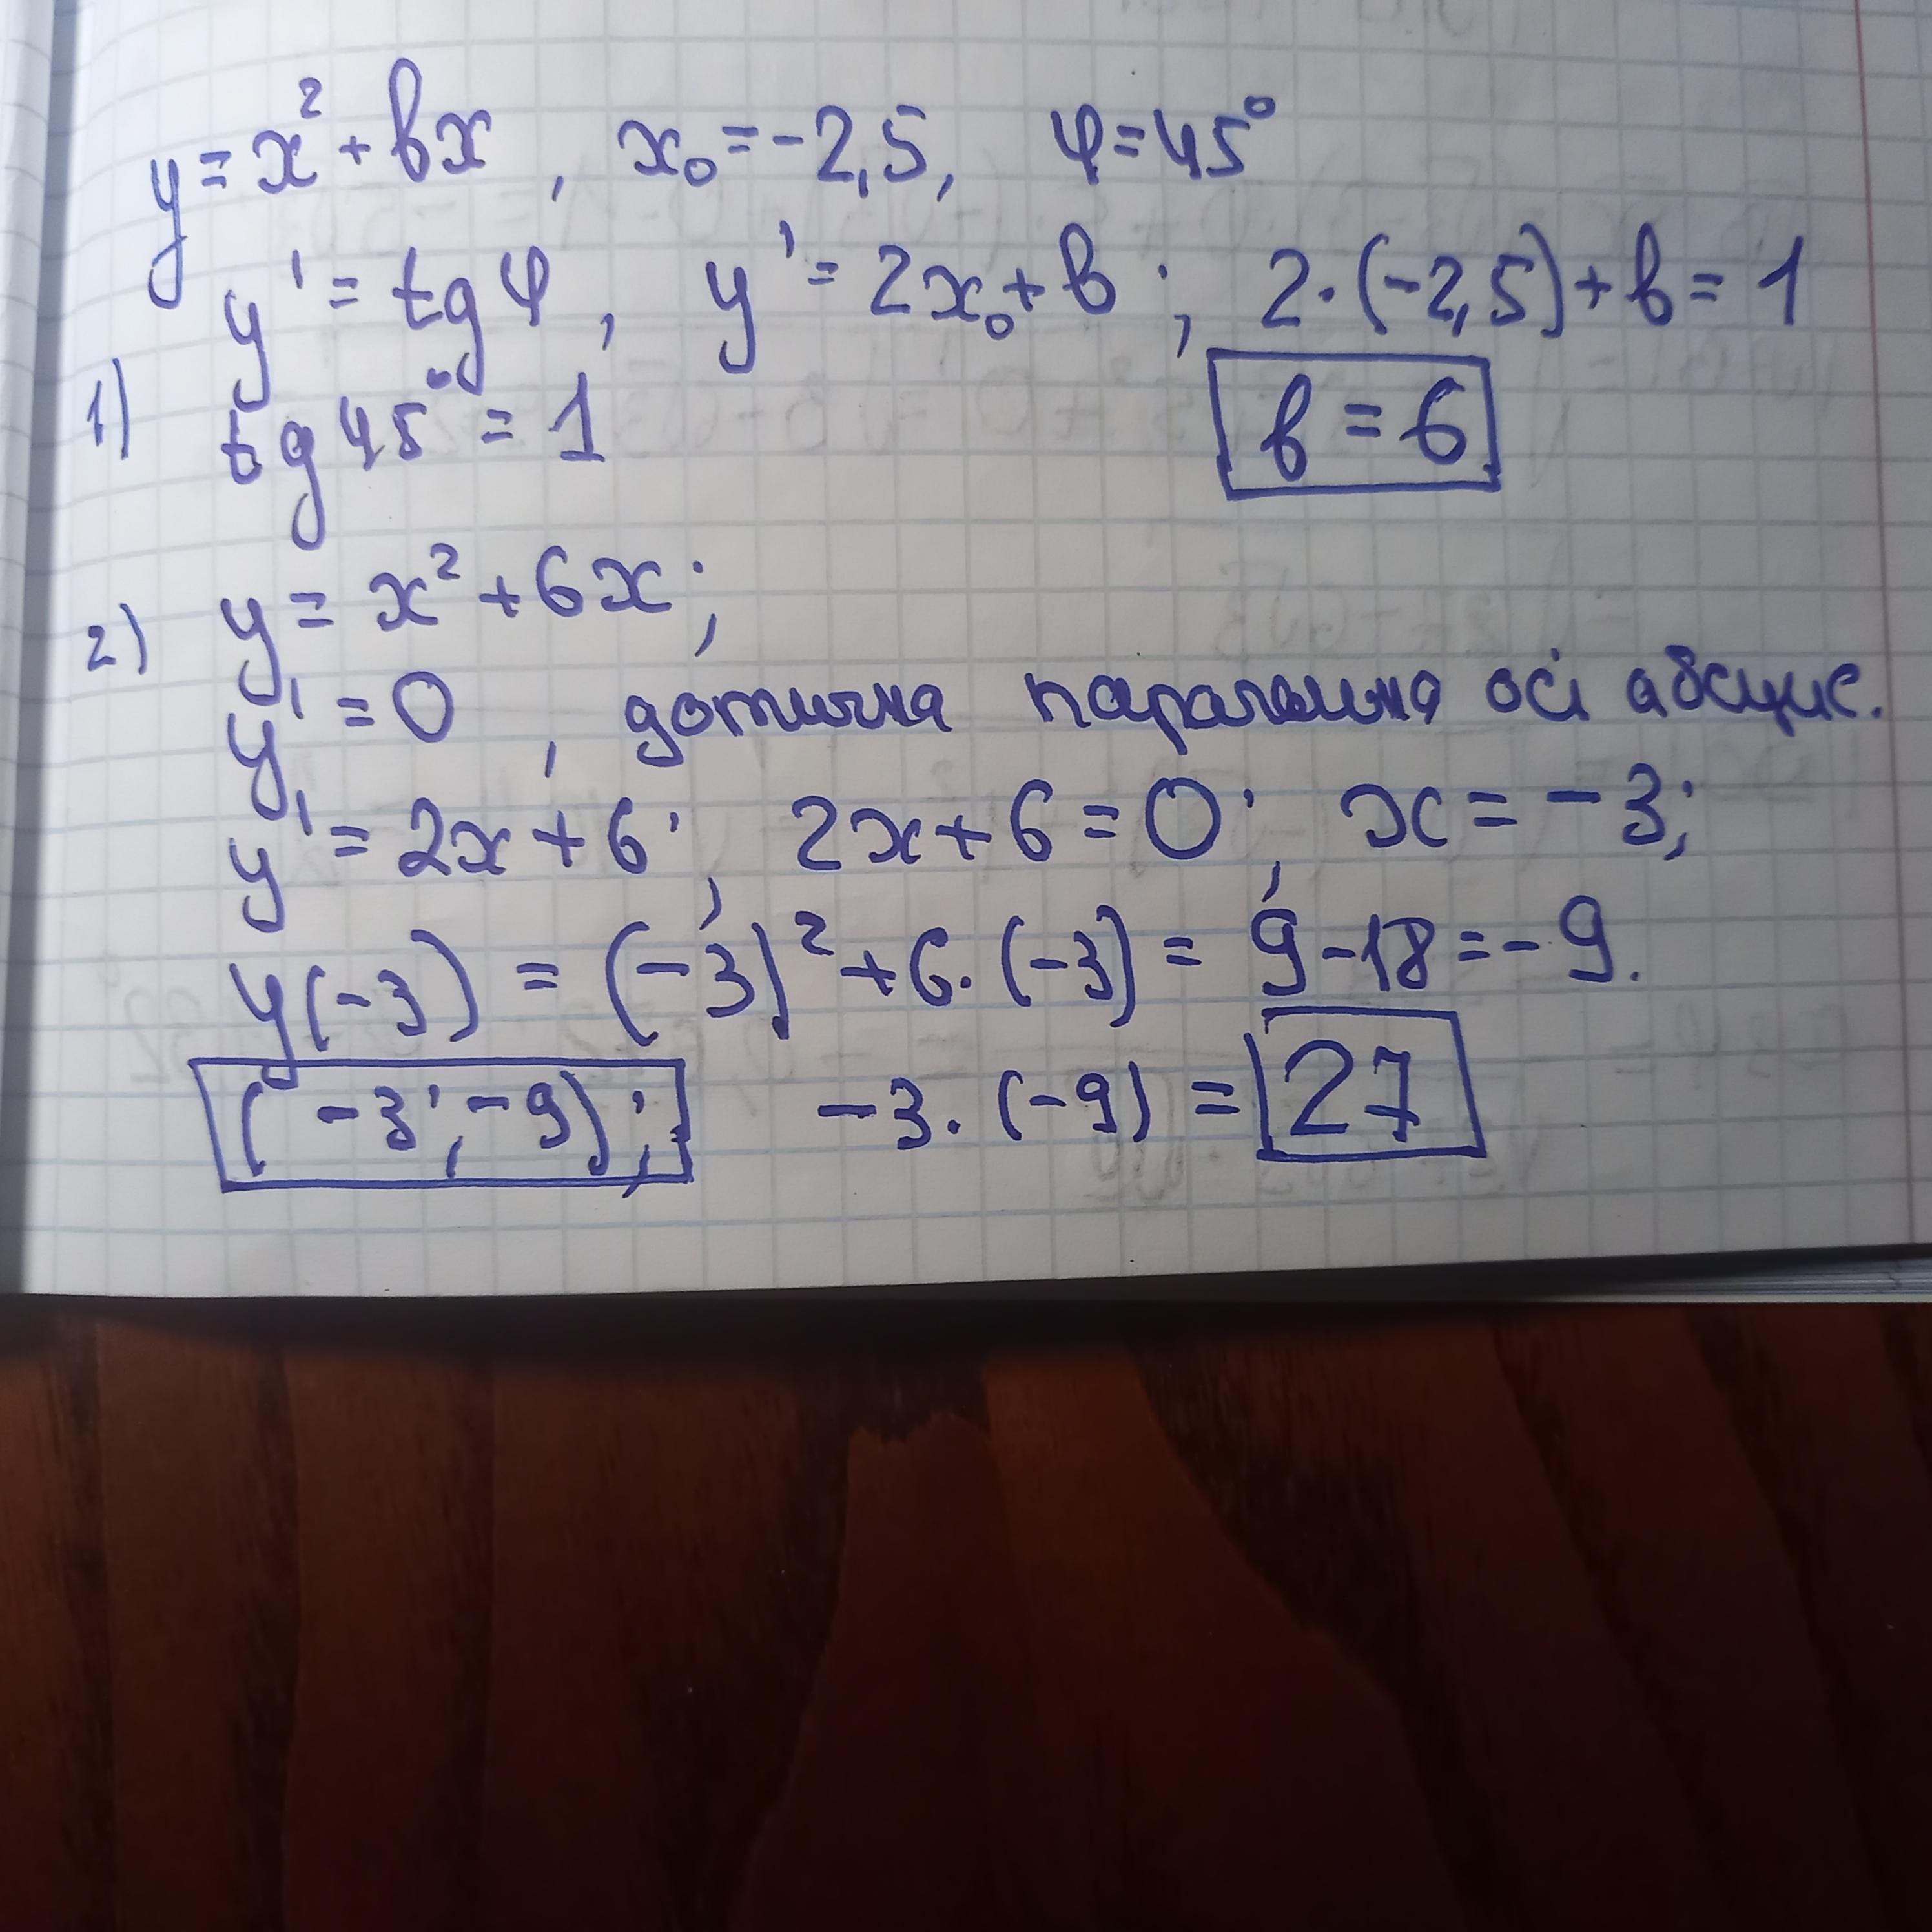 y = x² + bx, x₀ = -2,5, φ = 45°
y' = tg φ, y' = 2x₀ + b; 2·(-2,5) + b = 1
1) tg 45° = 1 b = 6
2) y = x² + 6x;
y' = 0, дотична паралельна осі абсцис.
y' = 2x + 6; 2x + 6 = 0; x = -3;
y(-3) = (-3)² + 6·(-3) = 9 - 18 = -9.
(-3; -9); -3·(-9) = 27